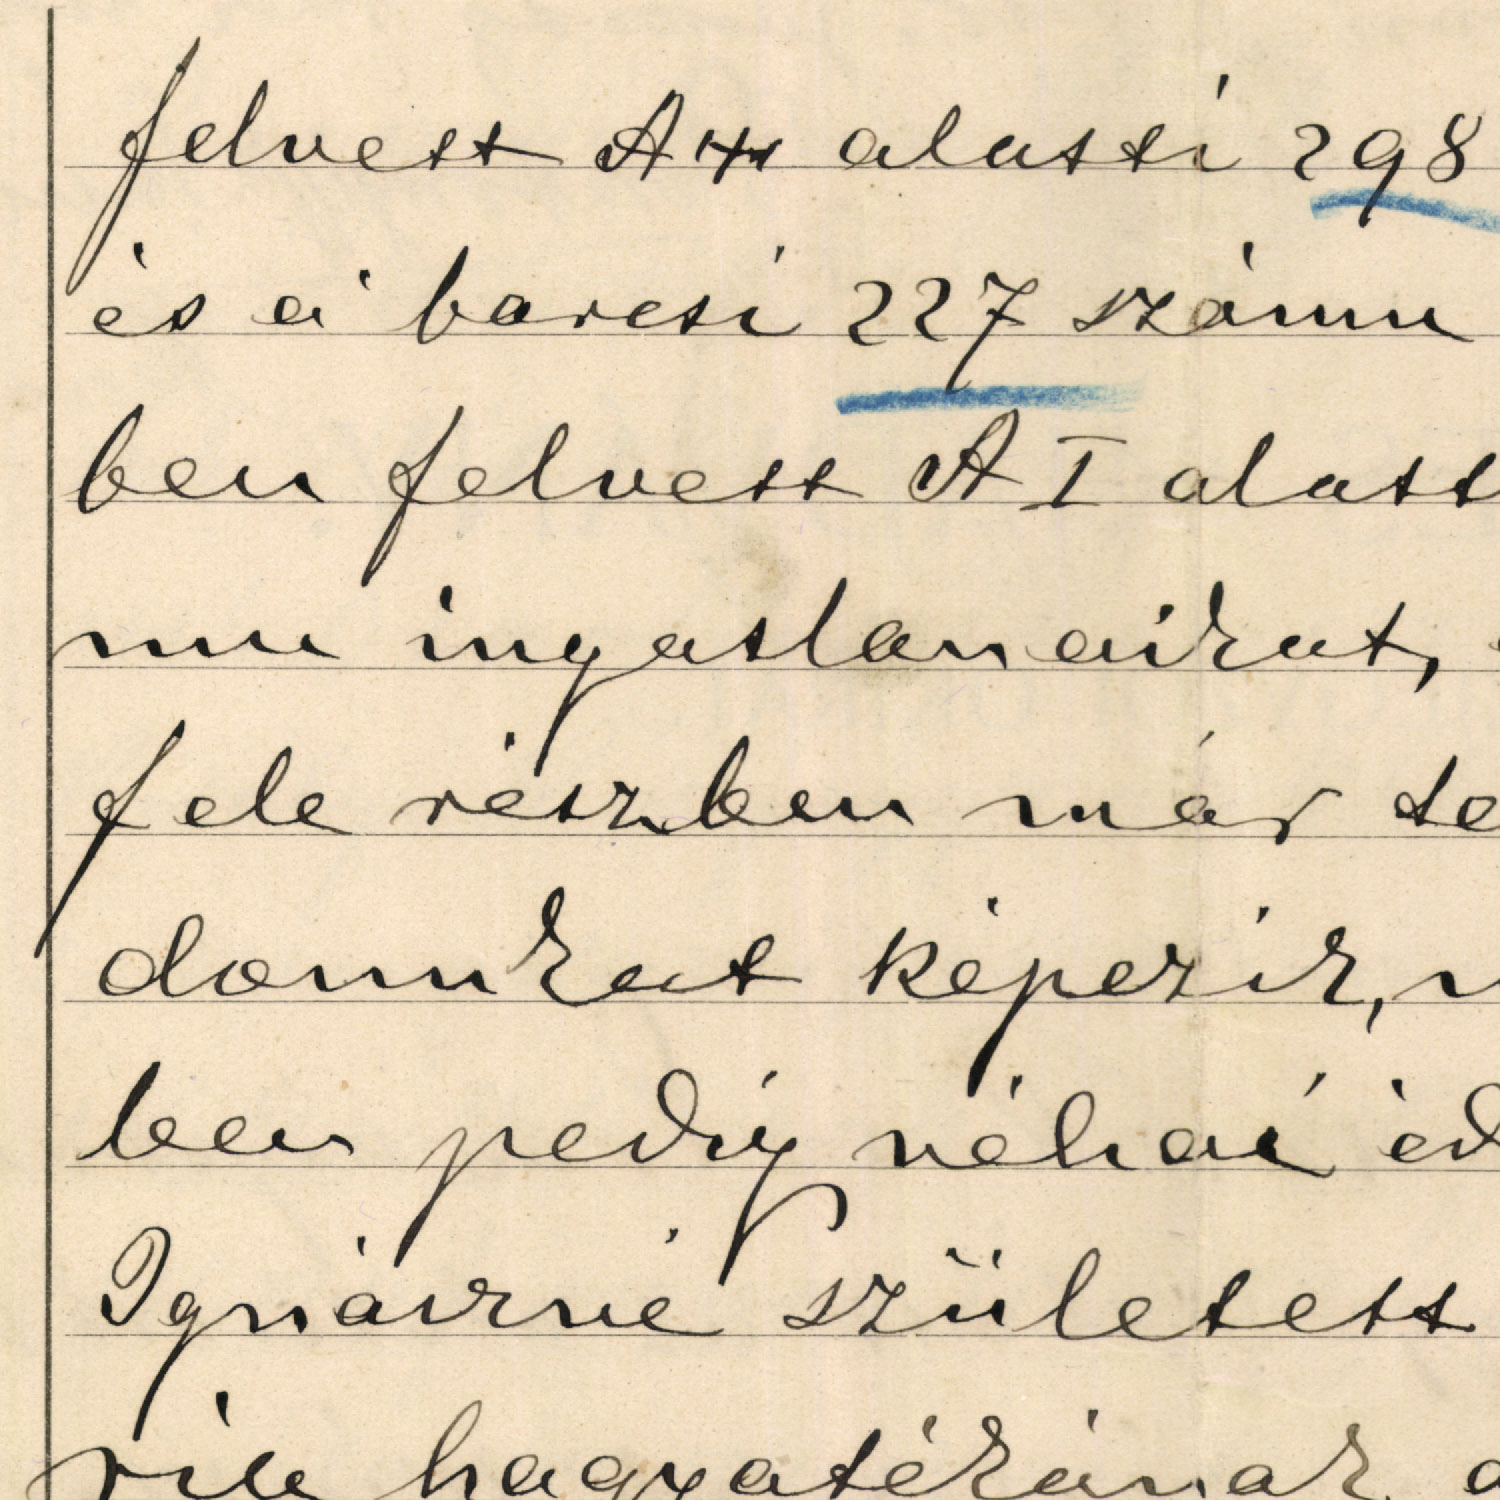 felvett A + alatti 298
és a' barcsi 227 számu
ben felvett A I alatt
mu ingatlanaikat,
fele részben már te
domukat képezik,
ben pedig néhai éd
Ignáczné született
hagyatékának